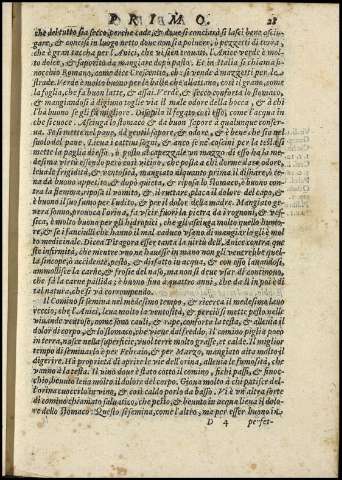 PRIMO. 28
che del tutto sia secco, perche cade, & doue si conciarà si lasci bene asciu-
gare, & conseruisi in luogo netto doue non sia poluere, ò pezzetti di terra,
che è gran taccha per l'Anici, che vi sian trouiti. L'Anice verde è mol-
to dolce, & saporito da mangiare dopò pasto. Et in Italia si chiama Fi-
nocchio Romano, come dice Crescentio, che si vende à mazzetti per le
strade. Verde è molto buono per le balie et le allatta, così il grano, come
la foglia, che fa buon latte, & assai. Verde, & secco conforta lo stomaco,
& mangiandosi à digiuno toglie via il male odore della bocca, & à chi
l'ha buono se gli fà migliore. Disopila il fegato così esso, come l'acqua in
che si cuoce. Asciuga lo stomaco & dà buon sapore à qualunque conser-
ua. Se si mette nel pane, dà gentil sapore, & odore, & è bene che sia nel
suolo del pane. Lieua i cattiui sogni, & anco se ne causini per la testa si
mette la paglia di esso. Il posto al capezzale vn mazzo di esso
lieua le frigidità, & ventosità, mangiato alquanto prima il disinare, è ce-
na dà buono appetito, & dopò questo, & riposa lo stomaco, è buono con-
tra la flemma, riposa il vomito, & il ruttare, placa il dolore del capo, &
è buono il suo fumo per l'udito, & per il dolor della madre. Mangiato ge-
nera sonno, prouoca l'orina, fa vscir fuori la pietra da i rognoni, & ve-
sica, è molto buono per gli hidropici, che gli asciuga molto quelli humo-
re, & se i fanciulli che hanno il mal caduco vsano di mangiarlo gli è mol-
to medicinale. Dicea Pitagora esser tanta la virtù dell'Anice contra que
ste infirmità, che mentre vno ne hauesse in mano non gli venirebbe quel-
la sincope, ò accidente, pesto, & disfatto in acqua, & con esso lauandosi,
ammollisce la carne, & frosie del naso, ma non si deue vsar di continouo,
che fà la carne pallida: è buono fino à quattro anni, che da li in poi è di
tal natura, che si và corrompendo.
Il Comino si semina nel medesimo tempo, & ricerca il medesimo lauo
reccio, che l'Anici, leua molto la ventosità, & perciò si mette pesto nelle
viuande ventose, come sono cauli, & rape, conforta la testa, & allenia il
dolor di corpo, & lo stomaco, che viene dal freddo. Il comino piglia poco in
terra, nasce nella superficie, vuol terra molto grassa, et calda. Il miglior
tempo di seminarlo è per Febraio, & per Marzo, mangiato aita molto il
digerire. Ha proprietà di aprire le vie dell'orina, allenia le fumosità, che
vanno à la testa. Il vino doue è stato cotto il comino, fichi passi, & finoc-
chio, beuuto lena molto il dolore del corpo. Gioua molto à chi patisce del-
l'orina cuocerlo in vino, & così caldo porlo da basso. Vi è vn'altra sorte
di comino chiamato saluatico, che pesto, & beuuto in acqua lieua il dolo-
re dello stomaco: Questo si semina, come l'altro, ma per esser buono in-
D 4 perfet-